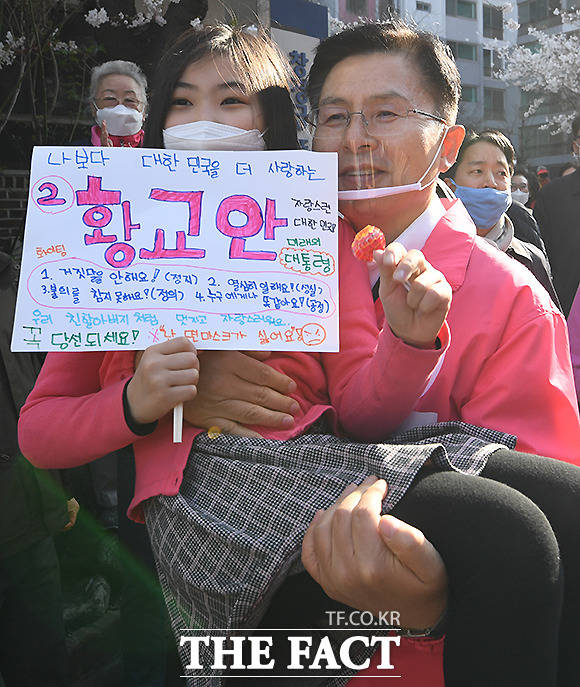 나보다 대한민국을 더 사랑하는
② 황교안
자랑스런
대한민국
미래의
대통령
화이팅
1. 거짓말을 안해요! (정직) 2. 열심히 일해요! (성실)
3. 불의를 참지 못해요! (정의) 4. 누구에게나 똑같아요! (공정)
우리 친할아버지처럼 멋지고 자랑스러워요
꼭 당선되세요! "난 면마스크가 싫어요"
TF.CO.KR
THE FACT